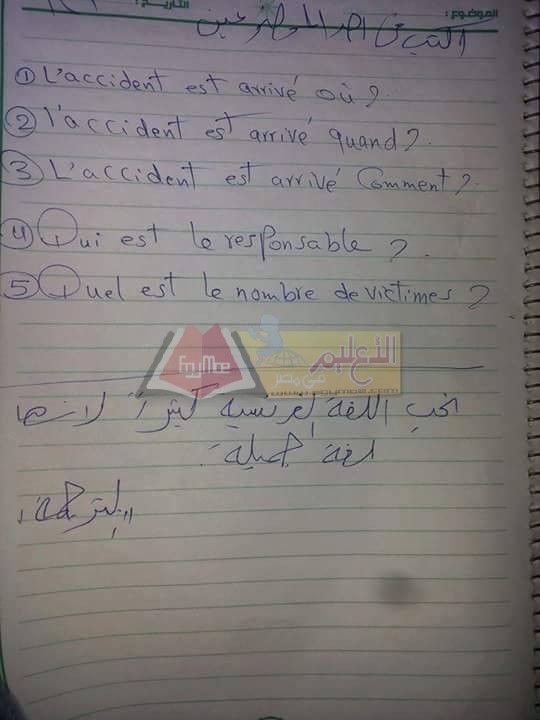 الموضوع : التاريخ :
اكتب في احد الموضوعين
① L'accident est arrivé où ?
② l'accident est arrivé quand ?
③ L'accident est arrivé Comment ?
④ Qui est le responsable ?
⑤ Quel est le nombre de victimes ?
التعليم
في مصر
FayMee
احب اللغة الفرنسية كثيراً لانها
لغة جميلة.
"الترجمة"